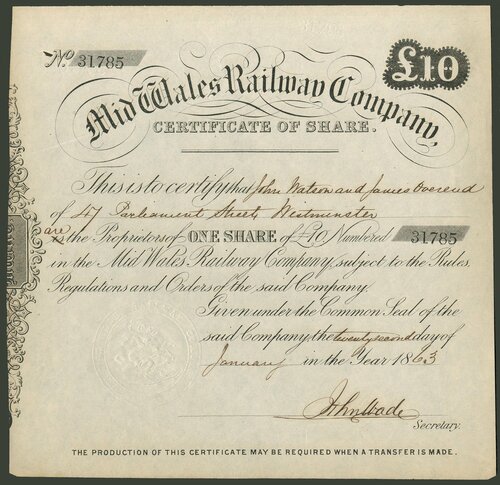 No 31785
£10
Mid Wales Railway Company,
CERTIFICATE OF SHARE.
This is to certify that John Watson and James Overend
of 47 Parliament Street, Westminster
are
is the Proprietors of ONE SHARE of £10 Numbered 31785
in the Mid Wales Railway Company, subject to the Rules,
Regulations and Orders of the said Company.
Given under the Common Seal of the
said Company, the twenty second day of
January in the Year 1863
John Wade
Secretary.
THE PRODUCTION OF THIS CERTIFICATE MAY BE REQUIRED WHEN A TRANSFER IS MADE.